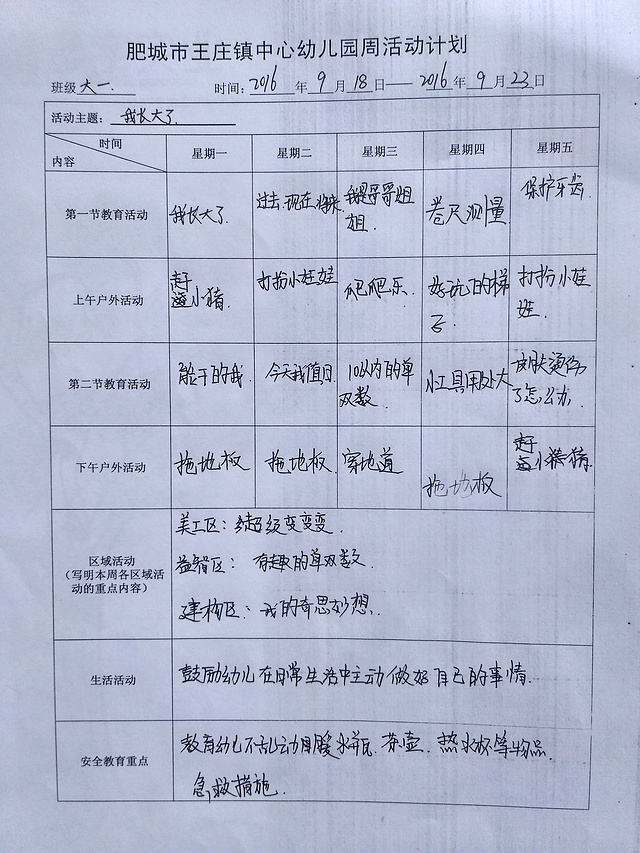 肥城市王庄镇中心幼儿园周活动计划
班级 大一. 时间: 2016 年 9 月 18 日——2016 年 9 月 23 日
活动主题: 我长大了.
时间
内容
星期一 星期二 星期三 星期四 星期五
第一节教育活动 我长大了. 过去.现在.将来 我是哥哥姐姐. 卷尺测量 保护牙齿.
上午户外活动 赶小猪. 打扮小娃娃 爬爬乐. 好玩的梯子. 打扮小娃娃.
第二节教育活动 能干的我. 今天我值日. 10以内的单双数. 小工具用处大 皮肤烫伤了怎么办.
下午户外活动 拖地板 拖地板. 穿地道 拖地板 赶小猪.
区域活动
(写明本周各区域活
动的重点内容)
美工区: 超级变变变.
益智区: 有趣的单双数.
建构区: 我的奇思妙想.
生活活动 鼓励幼儿在日常生活中主动做好自己的事情.
安全教育重点 教育幼儿不乱动用暖水瓶. 茶壶. 热水杯等物品.
急救措施.